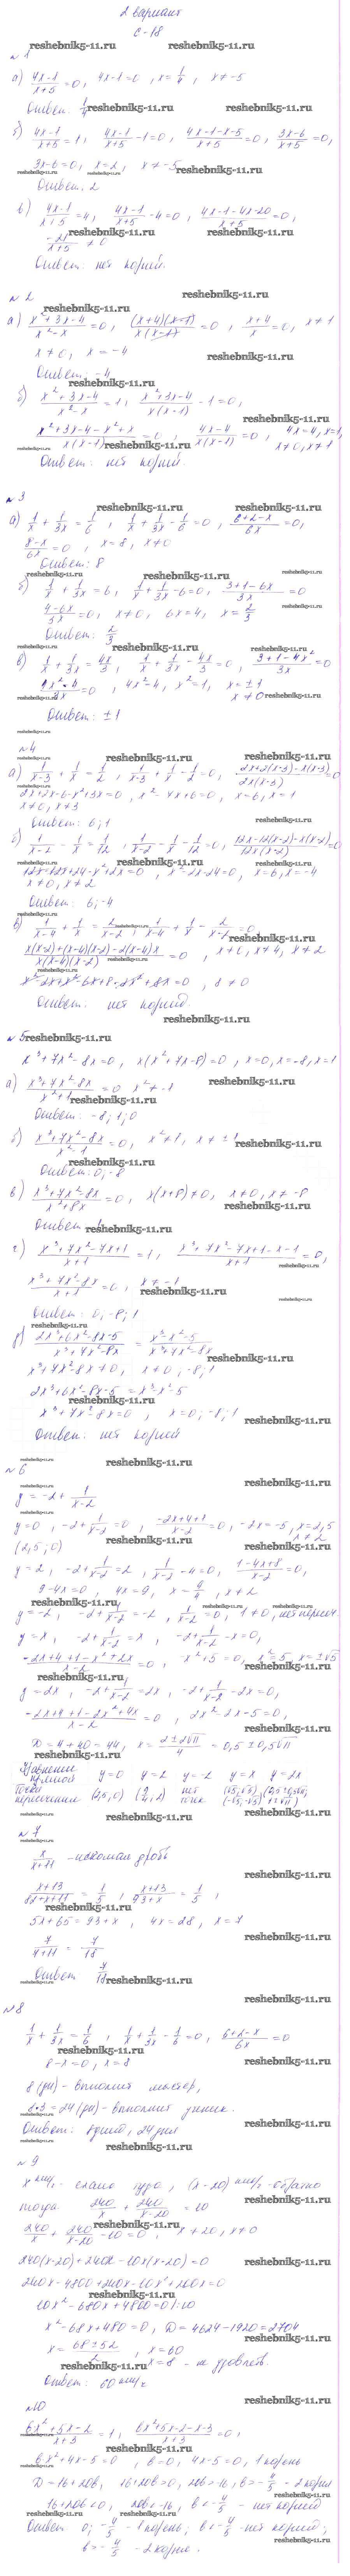 2 вариант
С-18
reshebnik5-11.ru reshebnik5-11.ru
№1
а) (4x-1)/(x+5) = 0, 4x-1=0, x=1/4, x≠-5
Ответ: 1/4
б) (4x-1)/(x+5) = 1, (4x-1)/(x+5) - 1 = 0, (4x-1-x-5)/(x+5) = 0, (3x-6)/(x+5) = 0,
3x-6=0, x=2, x≠-5
Ответ: 2
в) (4x-1)/(x+5) = 4, (4x-1)/(x+5) - 4 = 0, (4x-1-4x-20)/(x+5) = 0,
-21/(x+5) ≠ 0
Ответ: нет корней.
№2
а) (x²+3x-4)/(x²-x) = 0, ((x+4)(x-1))/(x(x-1)) = 0, (x+4)/x = 0, x≠1
x≠0, x=-4
Ответ: -4
б) (x²+3x-4)/(x²-x) = 1, (x²+3x-4)/(x(x-1)) - 1 = 0,
(x²+3x-4-x²+x)/(x(x-1)) = 0, (4x-4)/(x(x-1)) = 0, 4x=4, x=1,
x≠0, x≠1
Ответ: нет корней.
№3
а) 1/x + 1/3x = 1/6, 1/x + 1/3x - 1/6 = 0, (6+2-x)/6x = 0,
(8-x)/6x = 0, x=8, x≠0
Ответ: 8
б) 1/x + 1/3x = 6, 1/x + 1/3x - 6 = 0, (3+1-6x)/3x = 0
(4-6x)/3x = 0, x≠0, 6x=4, x=2/3
Ответ: 2/3
в) 1/x + 1/3x = 4x/3, 1/x + 1/3x - 4x/3 = 0, (3+1-4x²)/3x = 0
4x²=4, x²=1, x=±1
x≠0
Ответ: ±1
№4
а) 1/(x-3) + 1/x = 1/2, 1/(x-3) + 1/x - 1/2 = 0, (2x+2(x-3)-x(x-3))/(2x(x-3)) = 0
2x+2x-6-x²+3x=0, x²-7x+6=0, x=6, x=1
x≠0, x≠3
Ответ: 6; 1
б) 1/(x-2) - 1/x = 1/12, 1/(x-2) - 1/x - 1/12 = 0, (12x-12(x-2)-x(x-2))/(12x(x-2)) = 0
12x-12x+24-x²+2x=0, x²-2x-24=0, x=6, x=-4
x≠0, x≠2
Ответ: 6; -4
в) 1/(x-4) + 1/x = 2/(x-2), 1/(x-4) + 1/x - 2/(x-2) = 0
(x(x-2)+(x-4)(x-2)-2(x-4)x)/(x(x-4)(x-2)) = 0, x≠0, x≠4, x≠2
x²-2x+x²-6x+8-2x²+8x=0, 8≠0
Ответ: нет корней.
№5
x³+7x²-8x=0, x(x²+7x-8)=0, x=0, x=-8, x=1
а) (x³+7x²-8x)/(x²+1) = 0 x²≠-1
Ответ: -8; 1; 0
б) (x³+7x²-8x)/(x²-1) = 0, x²≠1, x≠±1
Ответ: 0; -8
в) (x³+7x²-8x)/(x²+8x) = 0, x(x+8)≠0, x≠0, x≠-8
Ответ: 1
г) (x³+7x²-7x+1)/(x+1) = 1, (x³+7x²-7x+1-x-1)/(x+1) = 0,
(x³+7x²-8x)/(x+1) = 0, x≠-1
Ответ: 0; -8; 1
д) (2x³+6x²-8x-5)/(x³+7x²-8x) = (x³-x²-5)/(x³+7x²-8x)
x³+7x²-8x≠0, x≠0; -8; 1
2x³+6x²-8x-5 = x³-x²-5
x³+7x²-8x=0, x=0; -8; 1
Ответ: нет корней
№6
y = -2 + 1/(x-2)
y=0, -2+1/(x-2)=0, (-2x+4+1)/(x-2)=0, -2x=-5, x=2,5
x≠2
(2,5; 0)
y=2, -2+1/(x-2)=2, 1/(x-2)-4=0, (1-4x+8)/(x-2)=0,
9-4x=0, 4x=9, x=9/4, x≠2
y=-2, -2+1/(x-2)=-2, 1/(x-2)=0, 1≠0, нет пересеч.
y=x, -2+1/(x-2)=x, -2+1/(x-2)-x=0,
(-2x+4+1-x²+2x)/(x-2)=0, -x²+5=0, x²=5, x=±√5
y=2x, -2+1/(x-2)=2x, -2+1/(x-2)-2x=0,
(-2x+4+1-2x²+4x)/(x-2)=0, 2x²-2x-5=0,
D=4+40=44, x=(2±2√11)/4=0,5±0,5√11
Уравнение прямой y=0 y=2 y=-2 y=x y=2x
Точки пересечения (2,5; 0) (9/4; 2) нет точек (√5; √5) (-√5; -√5) (0,5±0,5√11; 1±√11)
№7
x/(x+11) - искомая дробь
(x+13)/(82+x+11) = 1/5, (x+13)/(93+x) = 1/5,
5x+65=93+x, 4x=28, x=7
7/(7+11) = 7/18
Ответ 7/18
№8
1/x + 1/3x = 1/6, 1/x + 1/3x - 1/6 = 0, (6+2-x)/6x = 0
8-x=0, x=8
8 (дн) - выполнит мастер,
8·3=24 (дн) - выполнит ученик.
Ответ: 8 дней, 24 дня
№9
x км/ч - ехало туда, (x-20) км/ч - обратно
тогда 240/x + 240/(x-20) = 10
240/x + 240/(x-20) - 10 = 0, x≠20, x≠0
240(x-20)+240x-10x(x-20)=0
240x-4800+240x-10x²+200x=0
10x²-680x+4800=0 |:10
x²-68x+480=0, D=4624-1920=2704
x=(68±52)/2, x=60
x=8 - не удовлетв.
Ответ: 60 км/ч
№10
(bx²+5x-2)/(x+3) = 1, (bx²+5x-2-x-3)/(x+3) = 0,
bx²+4x-5=0, b=0, 4x-5=0, 1 корень
D=16+20b, 16+20b>0, 20b>-16, b>-4/5 - 2 корня
16+20b<0, 20b<-16, b<-4/5 - нет корней
Ответ 0; -4/5 - 1 корень; b<-4/5 - нет корней;
b>-4/5 - 2 корня.